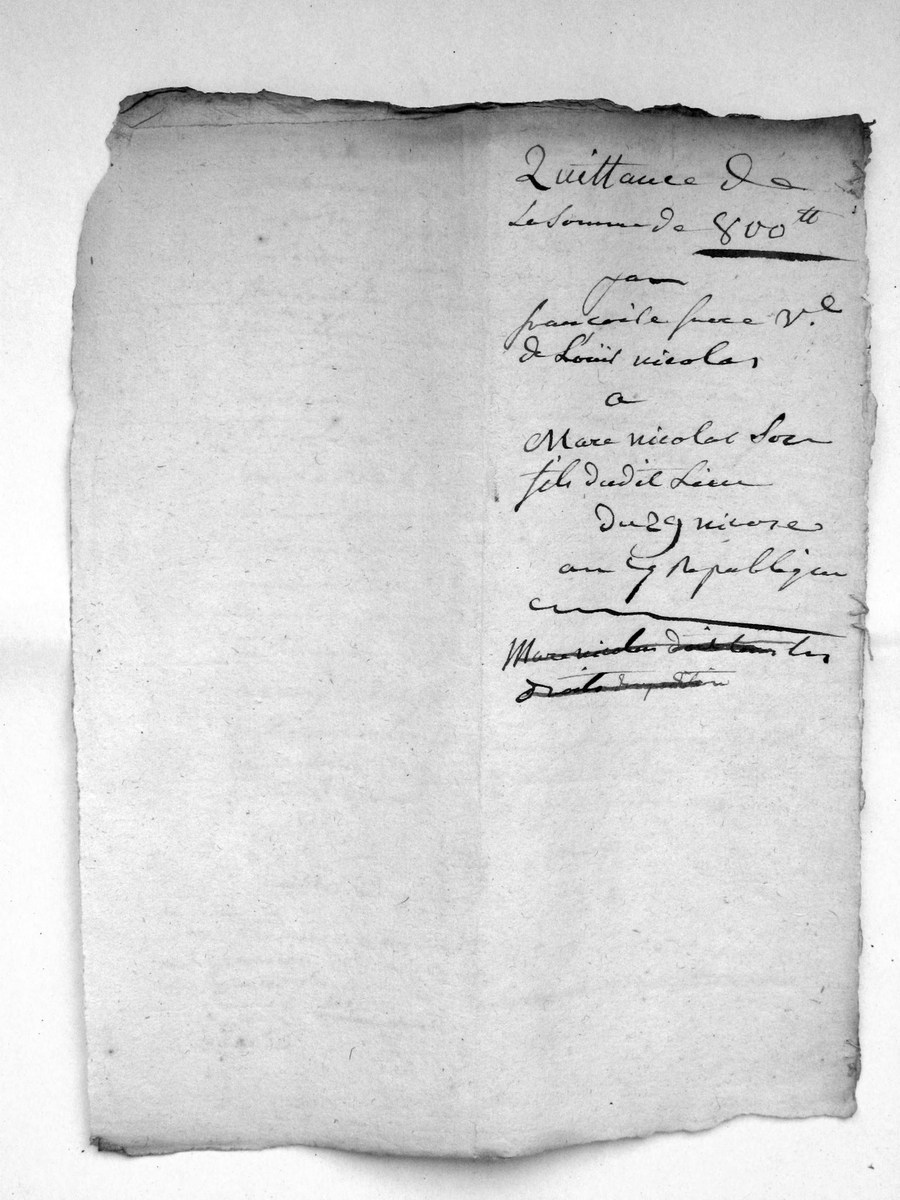 Quittance de
La Somme de 800 tt
par
francoise serre v.e
de Loüis nicolas
a
Marc nicolas Son
fils dudit Lieu
du 29 nivose
an 9 Republiquen
Marc nicolas doit tous les
droits